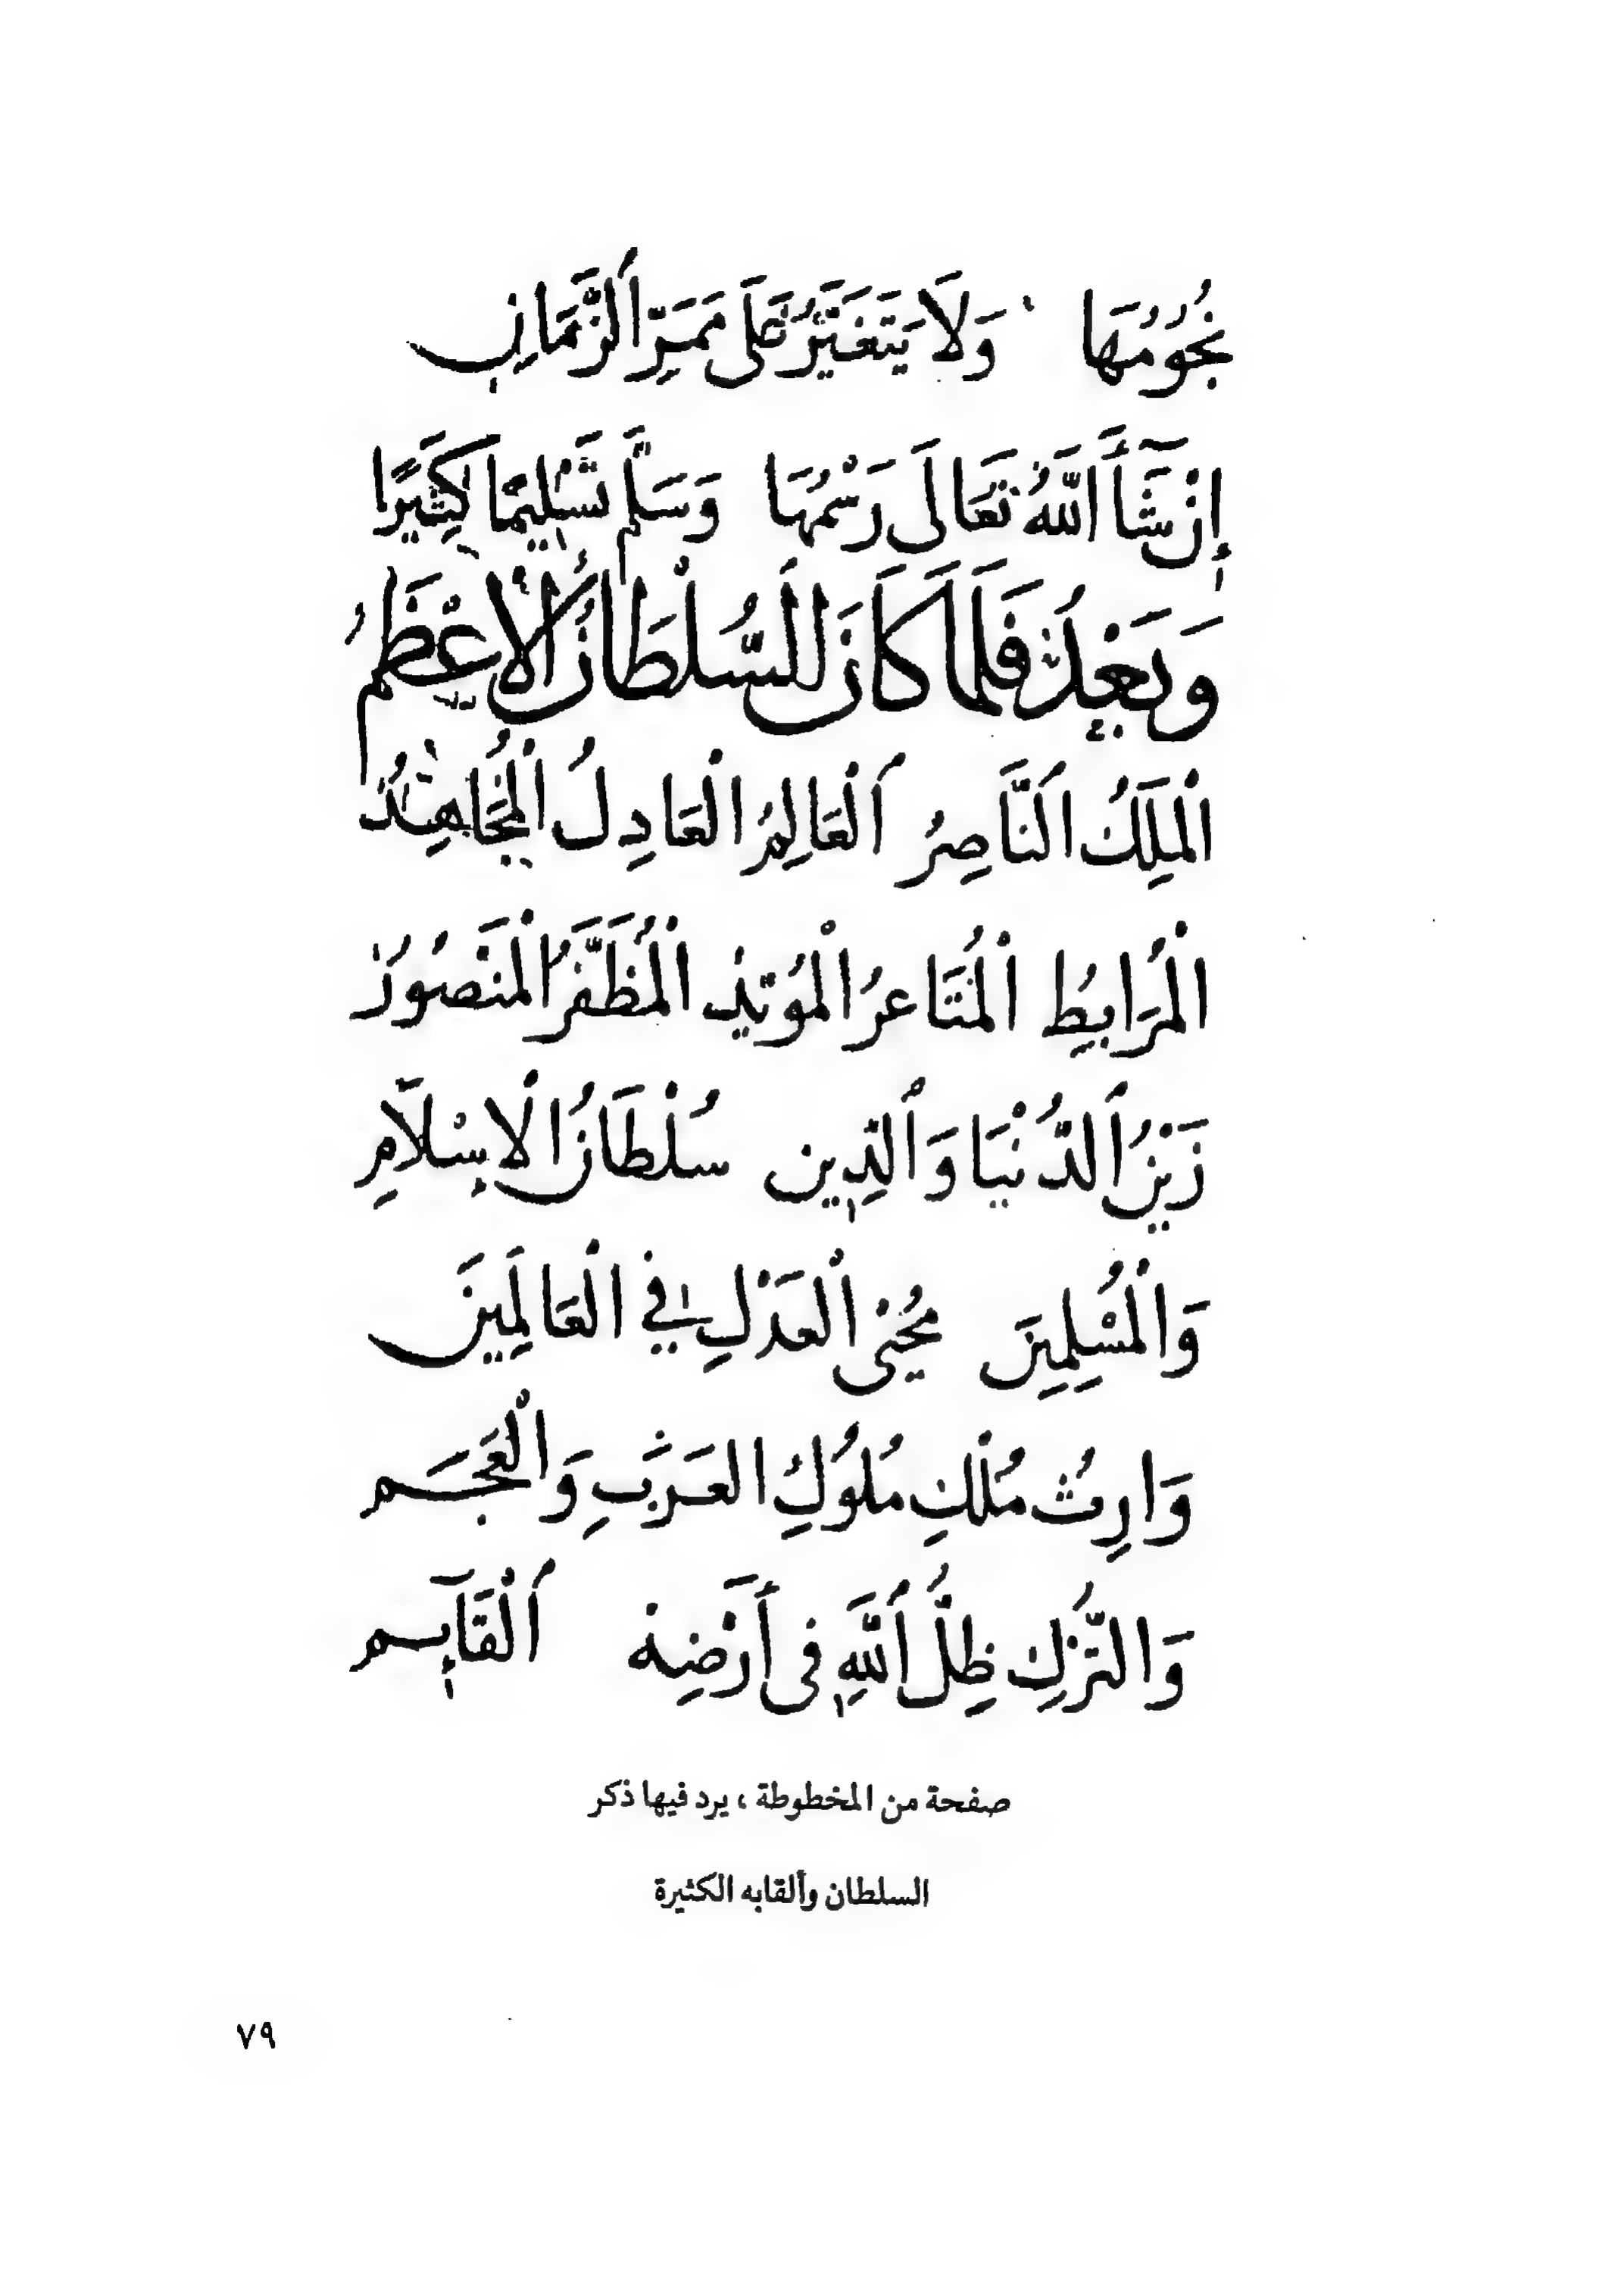 نُجُومُهَا وَلَا يَتَغَيَّرُ عَلَى مَمَرِّ الزَّمَانِ
إِنْ شَآءَ اللَّهُ تَعَالَى رَسْمُهَا وَسَلَّم تَسْلِيمًا كَثِيرًا
وَبَعْدُ فَلَمَّا كَانَ السُّلْطَانُ الْأَعْظَمُ
الْمَلِكُ النَّاصِرُ الْعَالِمُ الْعَادِلُ الْمُجَاهِدُ
الْمُرَابِطُ الْمُثَاغِرُ الْمُوَيَّدُ الْمُظَفَّرُ الْمَنْصُورُ
زَيْنُ الدُّنْيَا وَالدِّين سُلْطَانُ الْإِسْلَامِ
وَالْمُسْلِمِينَ مُحْيِي الْعَدْلِ فِي الْعَالَمِينَ
وَارِثُ مُلْكِ مُلُوكِ الْعَرَبِ وَالْعَجَم
وَالتُّرْكِ ظِلُّ اللَّهِ فِي أَرْضِه الْقَآئِم
صفحة من المخطوطة ، يرد فيها ذكر
السلطان وألقابه الكثيرة
٧٩